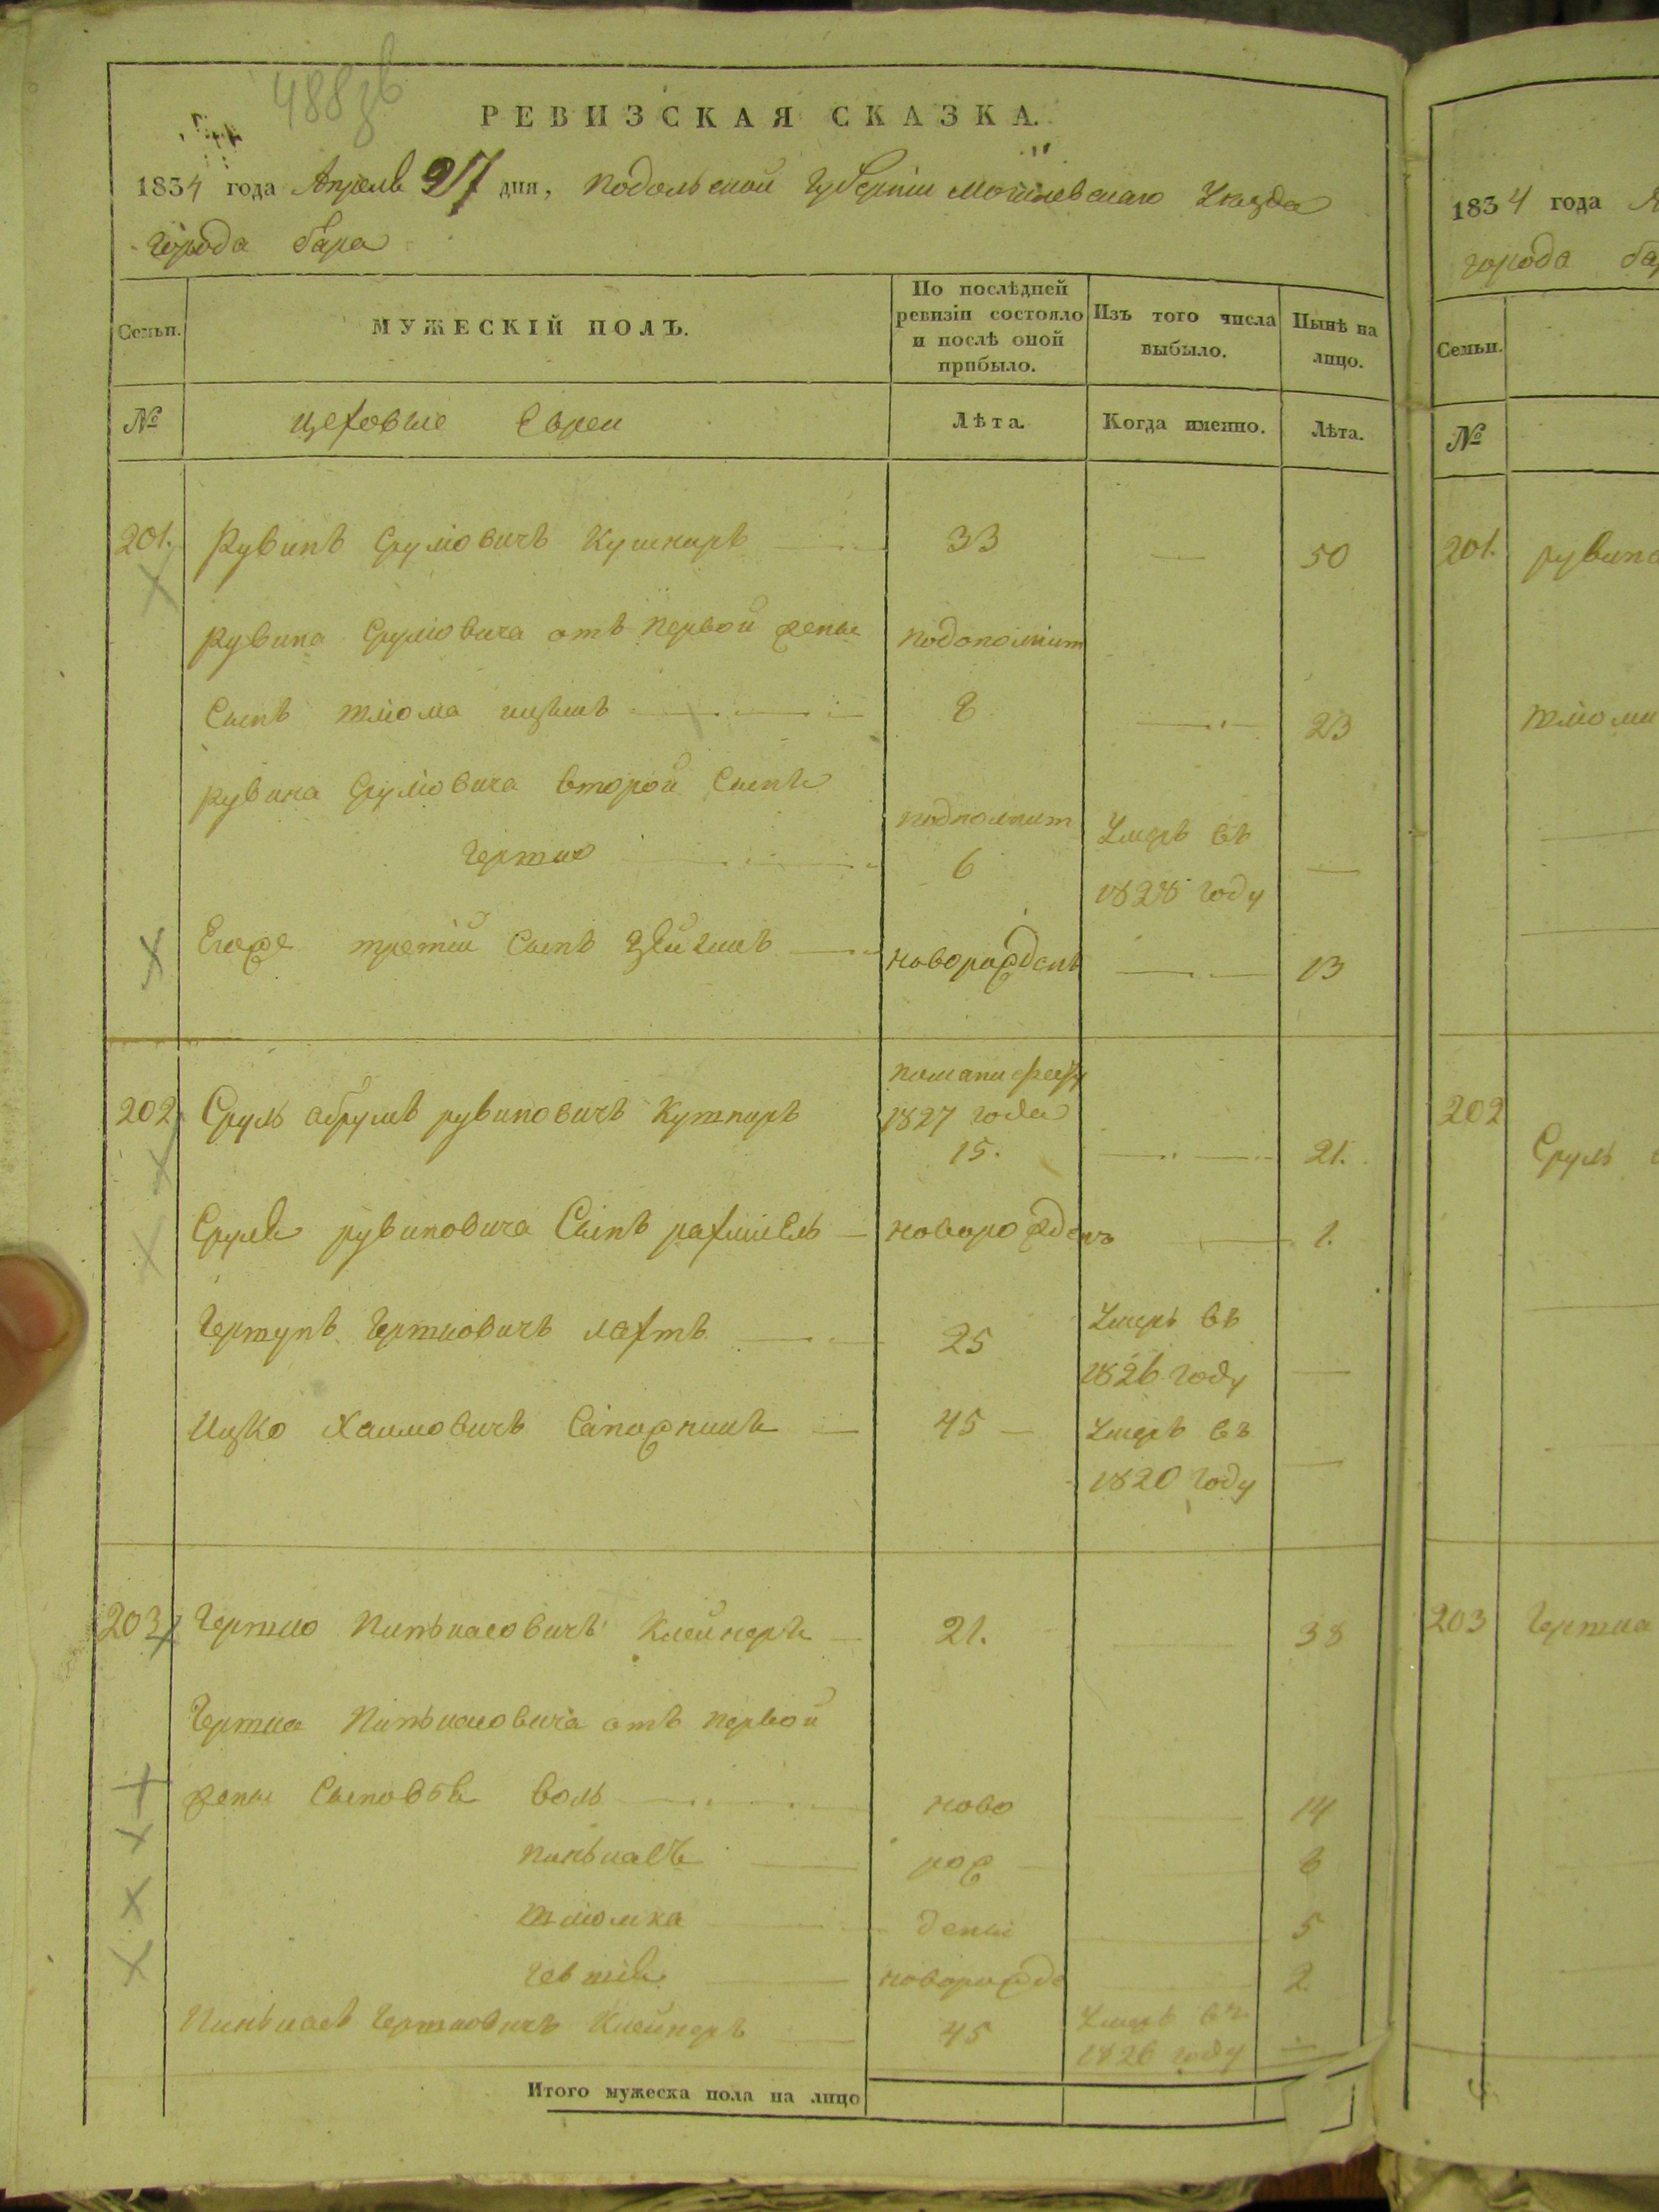 488зв
РЕВИЗСКАЯ СКАЗКА.
1834 года Апреля 27 дня, Подольской Губернии Могилевскаго Уезда
города бара
Семьи.
МУЖЕСКІЙ ПОЛЪ.
По послѣдней ревизіи состояло и послѣ оной прибыло.
Изъ того числа выбыло.
Нынѣ на лицо.
№
цеховые Евреи
Лѣта.
Когда именно.
Лѣта.
201. Рувинъ Сруліовичъ Кушниръ 33 — 50
Рувина Сруліовича отъ первой жены
Сынъ Шліома 8 — 23
Рувина Сруліовича второй Сынъ
Гершко 6 Умеръ въ 1828 году —
Егоже третій Сынъ новорожденъ — 13
202 Сруль рувиновичъ Кушниръ 1827 года 15. — 21.
Сруля рувиновича Сынъ новорожденъ — 1.
Гершковичъ 25 Умеръ въ 1826 году —
Ицко Хаимовичъ Сапожникъ 45 — Умеръ въ 1820 году —
203 Гершко Пинькасовичъ Клейнеръ 21. — 38
Гершка Пинькасовича отъ первой
жены Сыновья воль ново — 14
Пинькасъ рож — 8
Шліомка дены — 5
новорожде — 2.
Пинькасъ Гершковичъ Клейнеръ 45 Умеръ въ 1826 году —
Итого мужеска пола на лицо
1834 года
города
Семьи.
№
201.
202
Сруль
203 Гершка